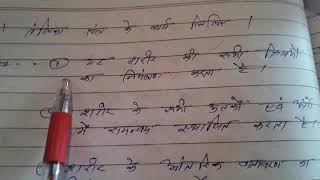 तंत्रिका तंत्र के कार्य लिखिए ।
① यह शरीर की सभी क्रियाओं
का नियंत्रण करता है ।
शरीर के सभी ऊतकों एवं अंगों
में समन्वय स्थापित करता है ।
शरीर के आंतरिक वातावरण का